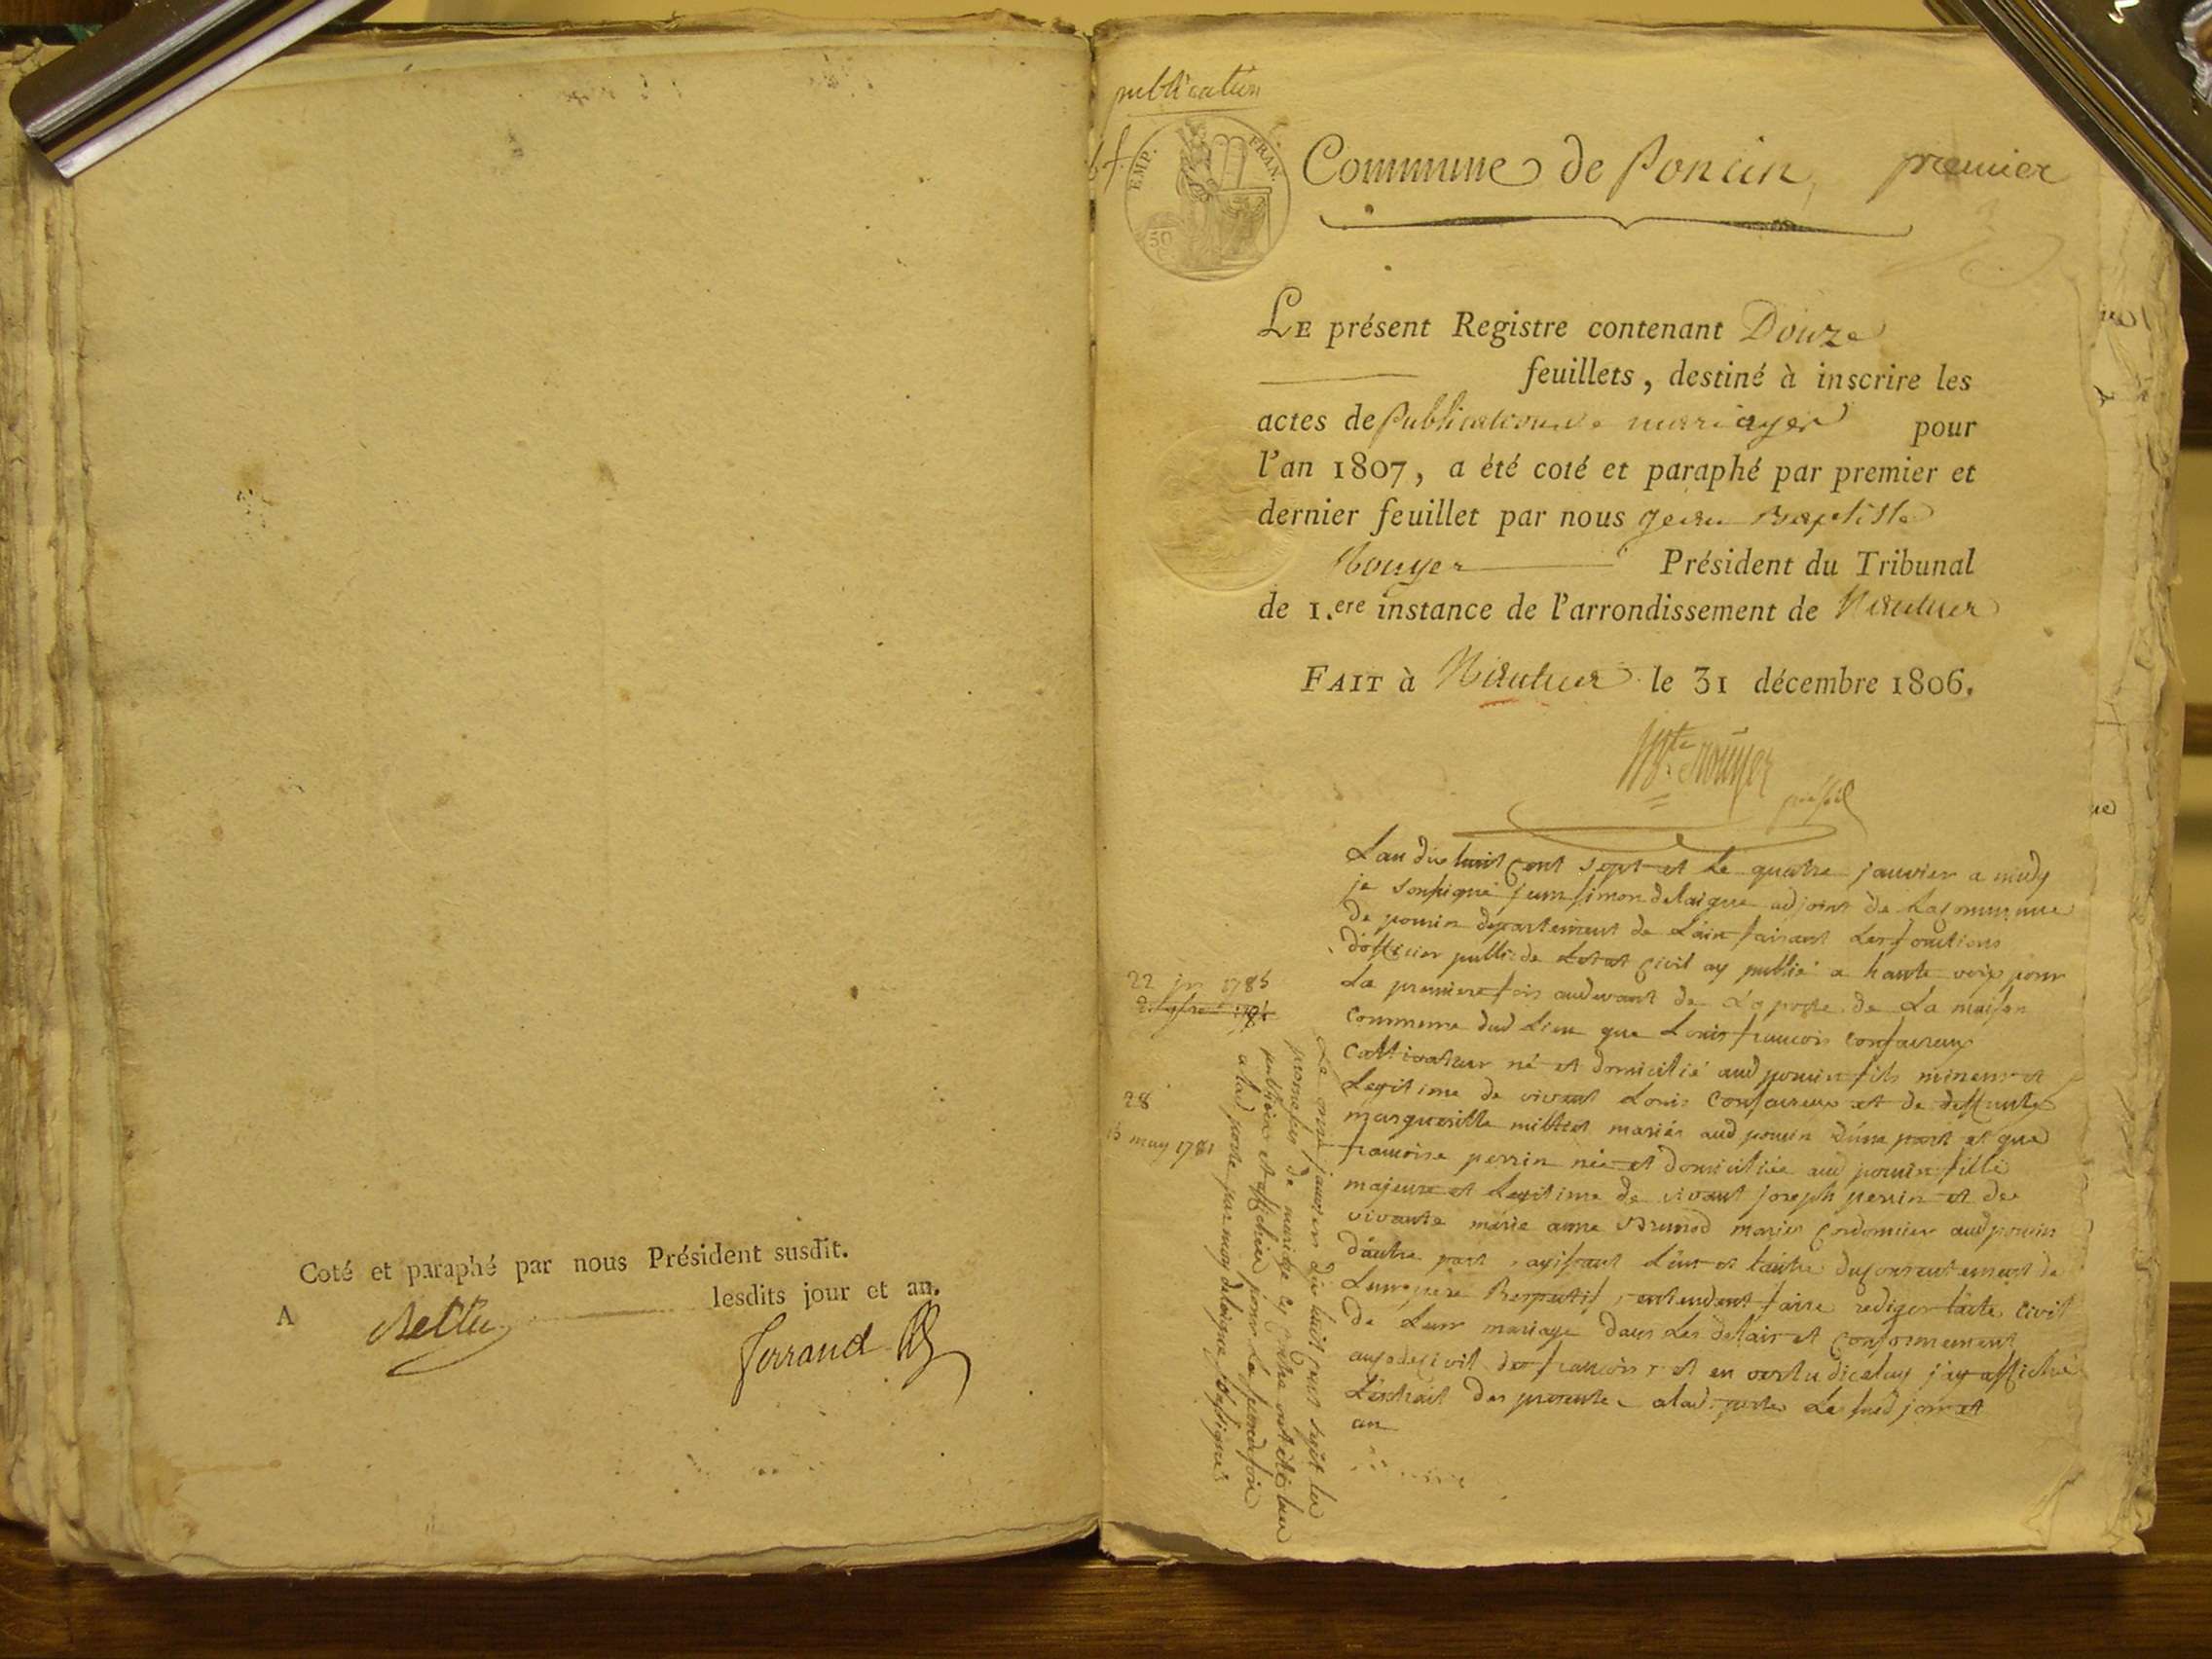 Coté et paraphé par nous Président susdit.
A Belley lesdits jour et an.
Ferrand
publication
EMP. FRAN.
50
Commune de Poncin premier
LE présent Registre contenant Douze
feuillets, destiné à inscrire les
actes de Publications de mariages pour
l'an 1807, a été coté et paraphé par premier et
dernier feuillet par nous Jean Baptiste
Rouyer Président du Tribunal
de 1.ere instance de l'arrondissement de Nantua
FAIT à Nantua le 31 décembre 1806.
Bte Rouyer
L'an dix huit cent sept et le quatre janvier a midy
je soussigné jean simon delaigue adjoint de la commune
de poncin département de L'ain faisant les fonctions
d'officier public de Letat civil ay publié a haute voix pour
La premiere fois au devant de La porte de La maison
commune dud Lieu que Louis francois confavreux
cultivateur né et domicilié aud poncin fils mineur et
Legitime de vivant Louis confavreux et de deffunte
margueritte milliet mariés aud poncin d'une part et que
francoise perrin née et domiciliée aud poncin fille
majeure et Legitime de vivant joseph perrin et de
vivante marie anne Brunod mariés cordonnier aud poncin
d'autre part, agissant L'un et L'autre du consentement de
Leur pere Respectif, entendent faire rediger L'acte civil
de Leur mariage dans Les delais et conformement
au code civil des francois, et en vertu dicelui j'ay affiché
L'extrait des presentes a lad. porte Le susd jour et
an
22 1785
28
15 may 1781
Le onze janvier dix huit cent sept les
promesses de mariage cy contre ont été lues
publiées et affichées pour La seconde fois
a lad porte par moy delaigue soussigné